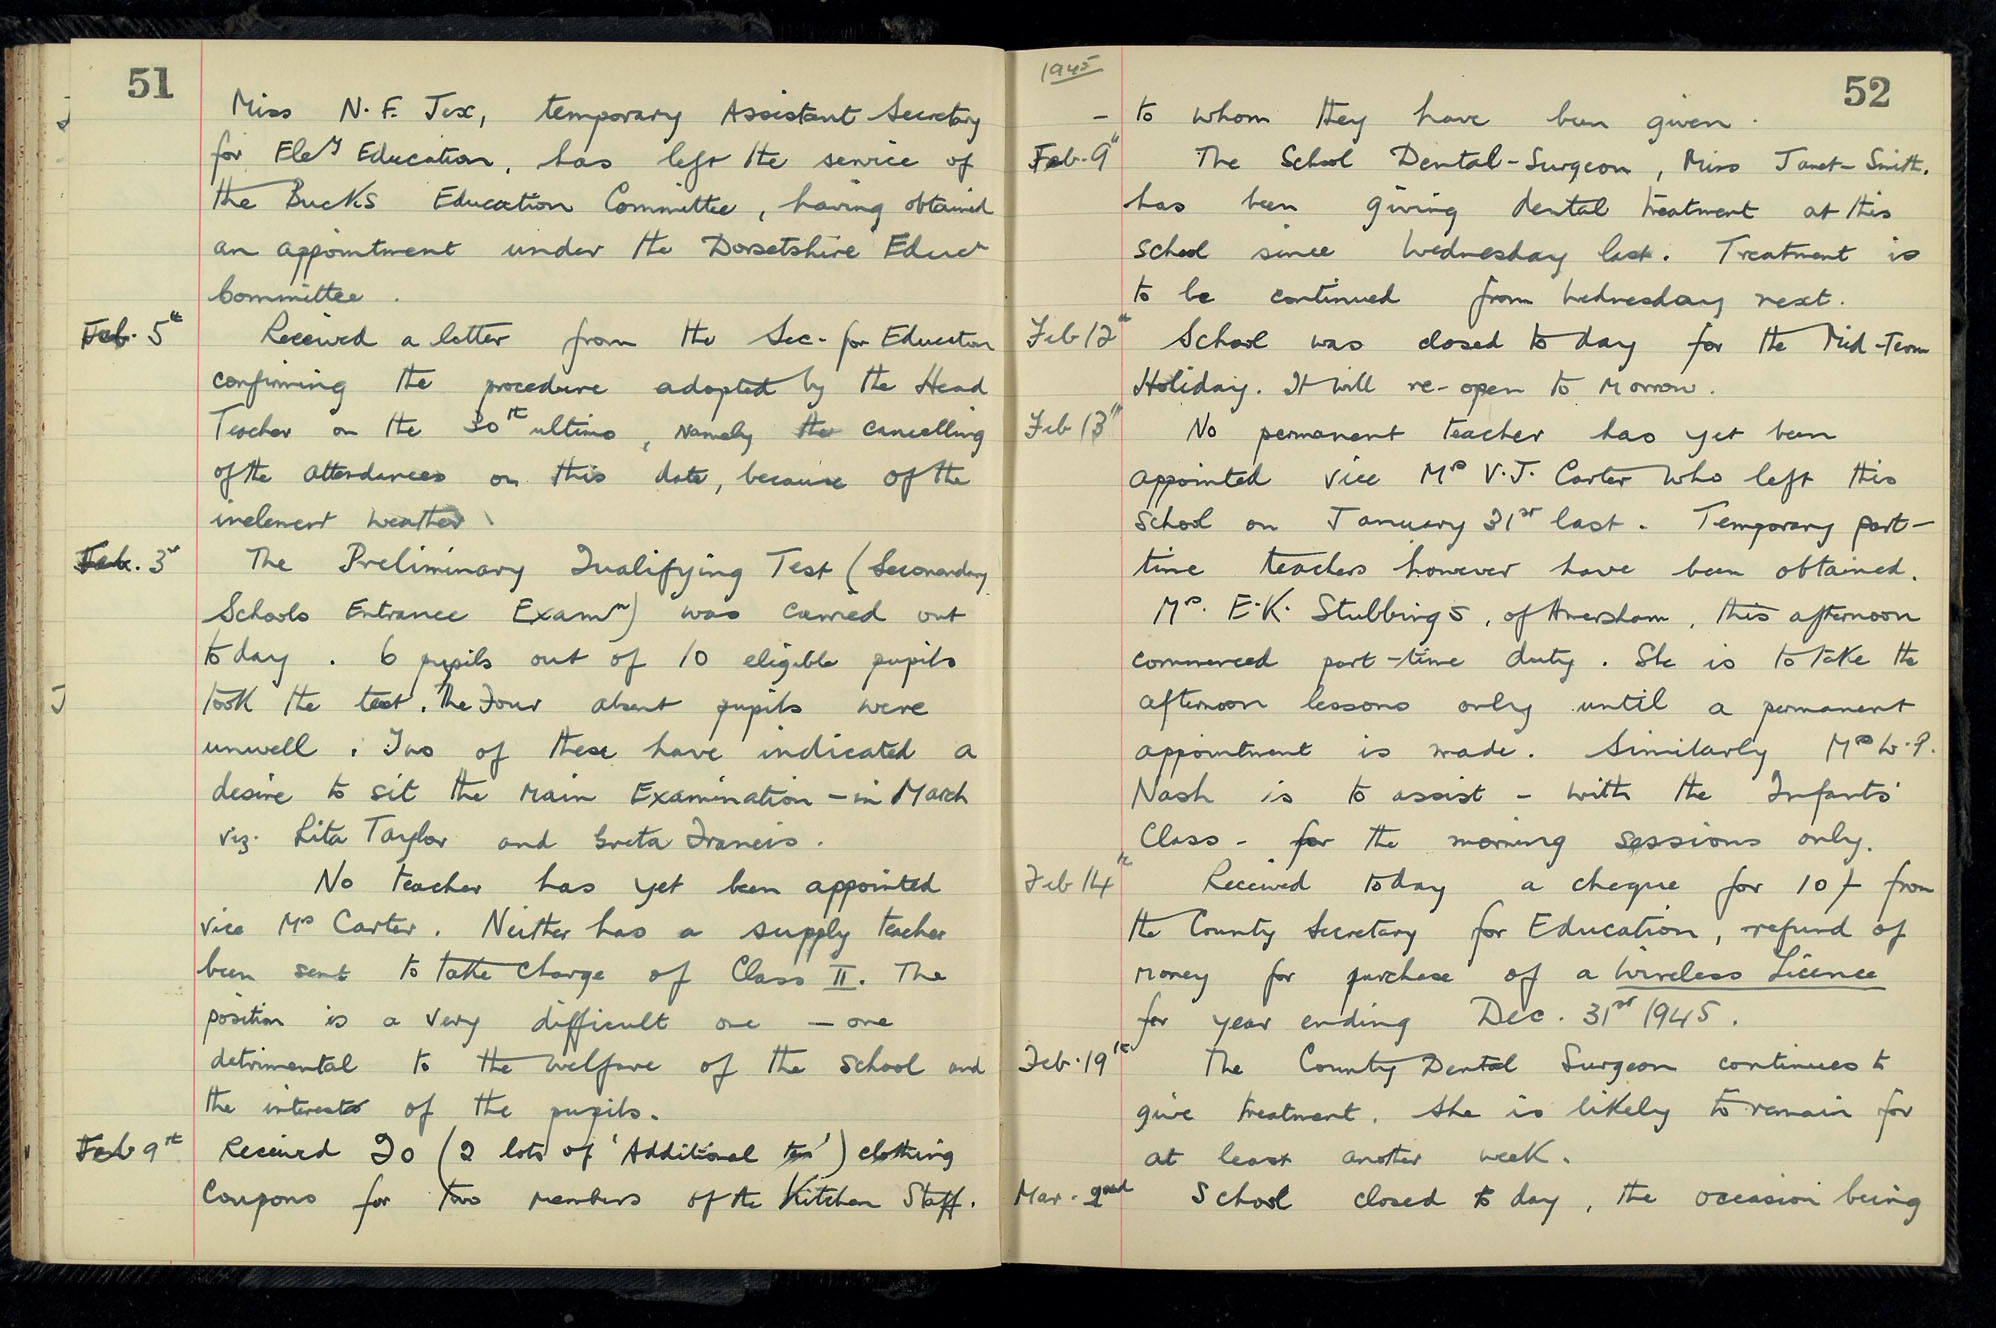 51
Miss N. F. Tex, temporary Assistant Secretary
for Eley Education, has left the service of
the Bucks Education Committee, having obtained
an appointment under the Dorsetshire Educn
Committee.
Feb. 5th Received a letter from the Sec. for Education
confirming the procedure adopted by the Head
Teacher on the 30th ultimo, namely the cancelling
of the attendances on this date, because of the
inclement weather.
Feb. 3rd The Preliminary Qualifying Test (Secondary
Schools Entrance Examn) was carried out
to day. 6 pupils out of 10 eligible pupils
took the test. The Four absent pupils were
unwell. Two of these have indicated a
desire to sit the Main Examination – in March
viz. Rita Taylor and Greta Francis.
No teacher has yet been appointed
vice Mrs Carter. Neither has a supply teacher
been sent to take charge of Class II. The
position is a very difficult one – one
detrimental to the welfare of the school and
the interests of the pupils.
Feb 9th Received 20 (2 lots of 'Additional ten') clothing
Coupons for two members of the Kitchen Staff.
1945
52
– to whom they have been given.
Feb. 9th The School Dental-Surgeon, Miss Janet-Smith.
has been giving dental treatment at this
school since Wednesday last. Treatment is
to be continued from Wednesday next.
Feb 12th School was closed to day for the Mid-Term
Holiday. It will re-open to morrow.
Feb 13th No permanent teacher has yet been
appointed vice Mrs V. J. Carter who left this
school on January 31st last. Temporary part-
time teachers however have been obtained.
Mrs. E. K. Stubbings, of Amersham, this afternoon
commenced part-time duty. She is to take the
afternoon lessons only until a permanent
appointment is made. Similarly Mrs W. P.
Nash is to assist – with the Infants'
Class – for the morning sessions only.
Feb 14th Received today a cheque for 10/- from
the County Secretary for Education, refund of
money for purchase of a Wireless Licence
for year ending Dec. 31st 1945.
Feb. 19th The County Dental Surgeon continues to
give treatment. She is likely to remain for
at least another week.
Mar. 2nd School closed to day, the occasion being